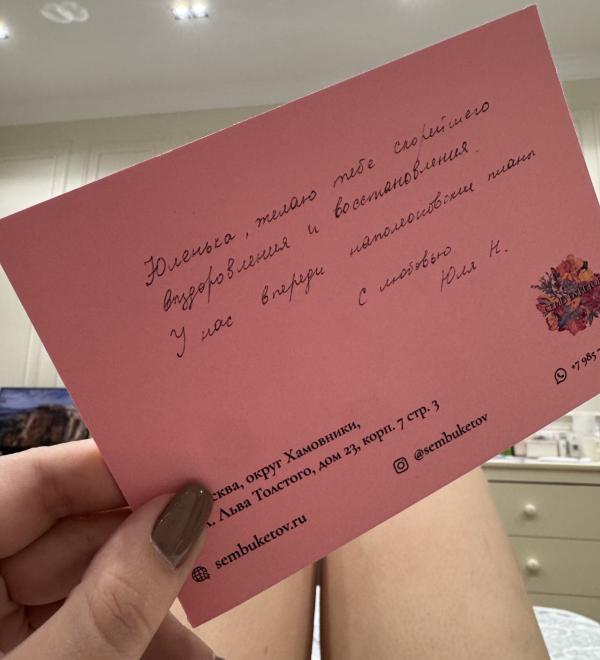 Юленька, желаю тебе скорейшего
выздоровления и восстановления.
У нас впереди наполеоновские планы
С любовью
Юля Н.
сква, округ Хамовники,
. Льва Толстого, дом 23, корп. 7 стр. 3
@sembuketov
sembuketov.ru
+7 985